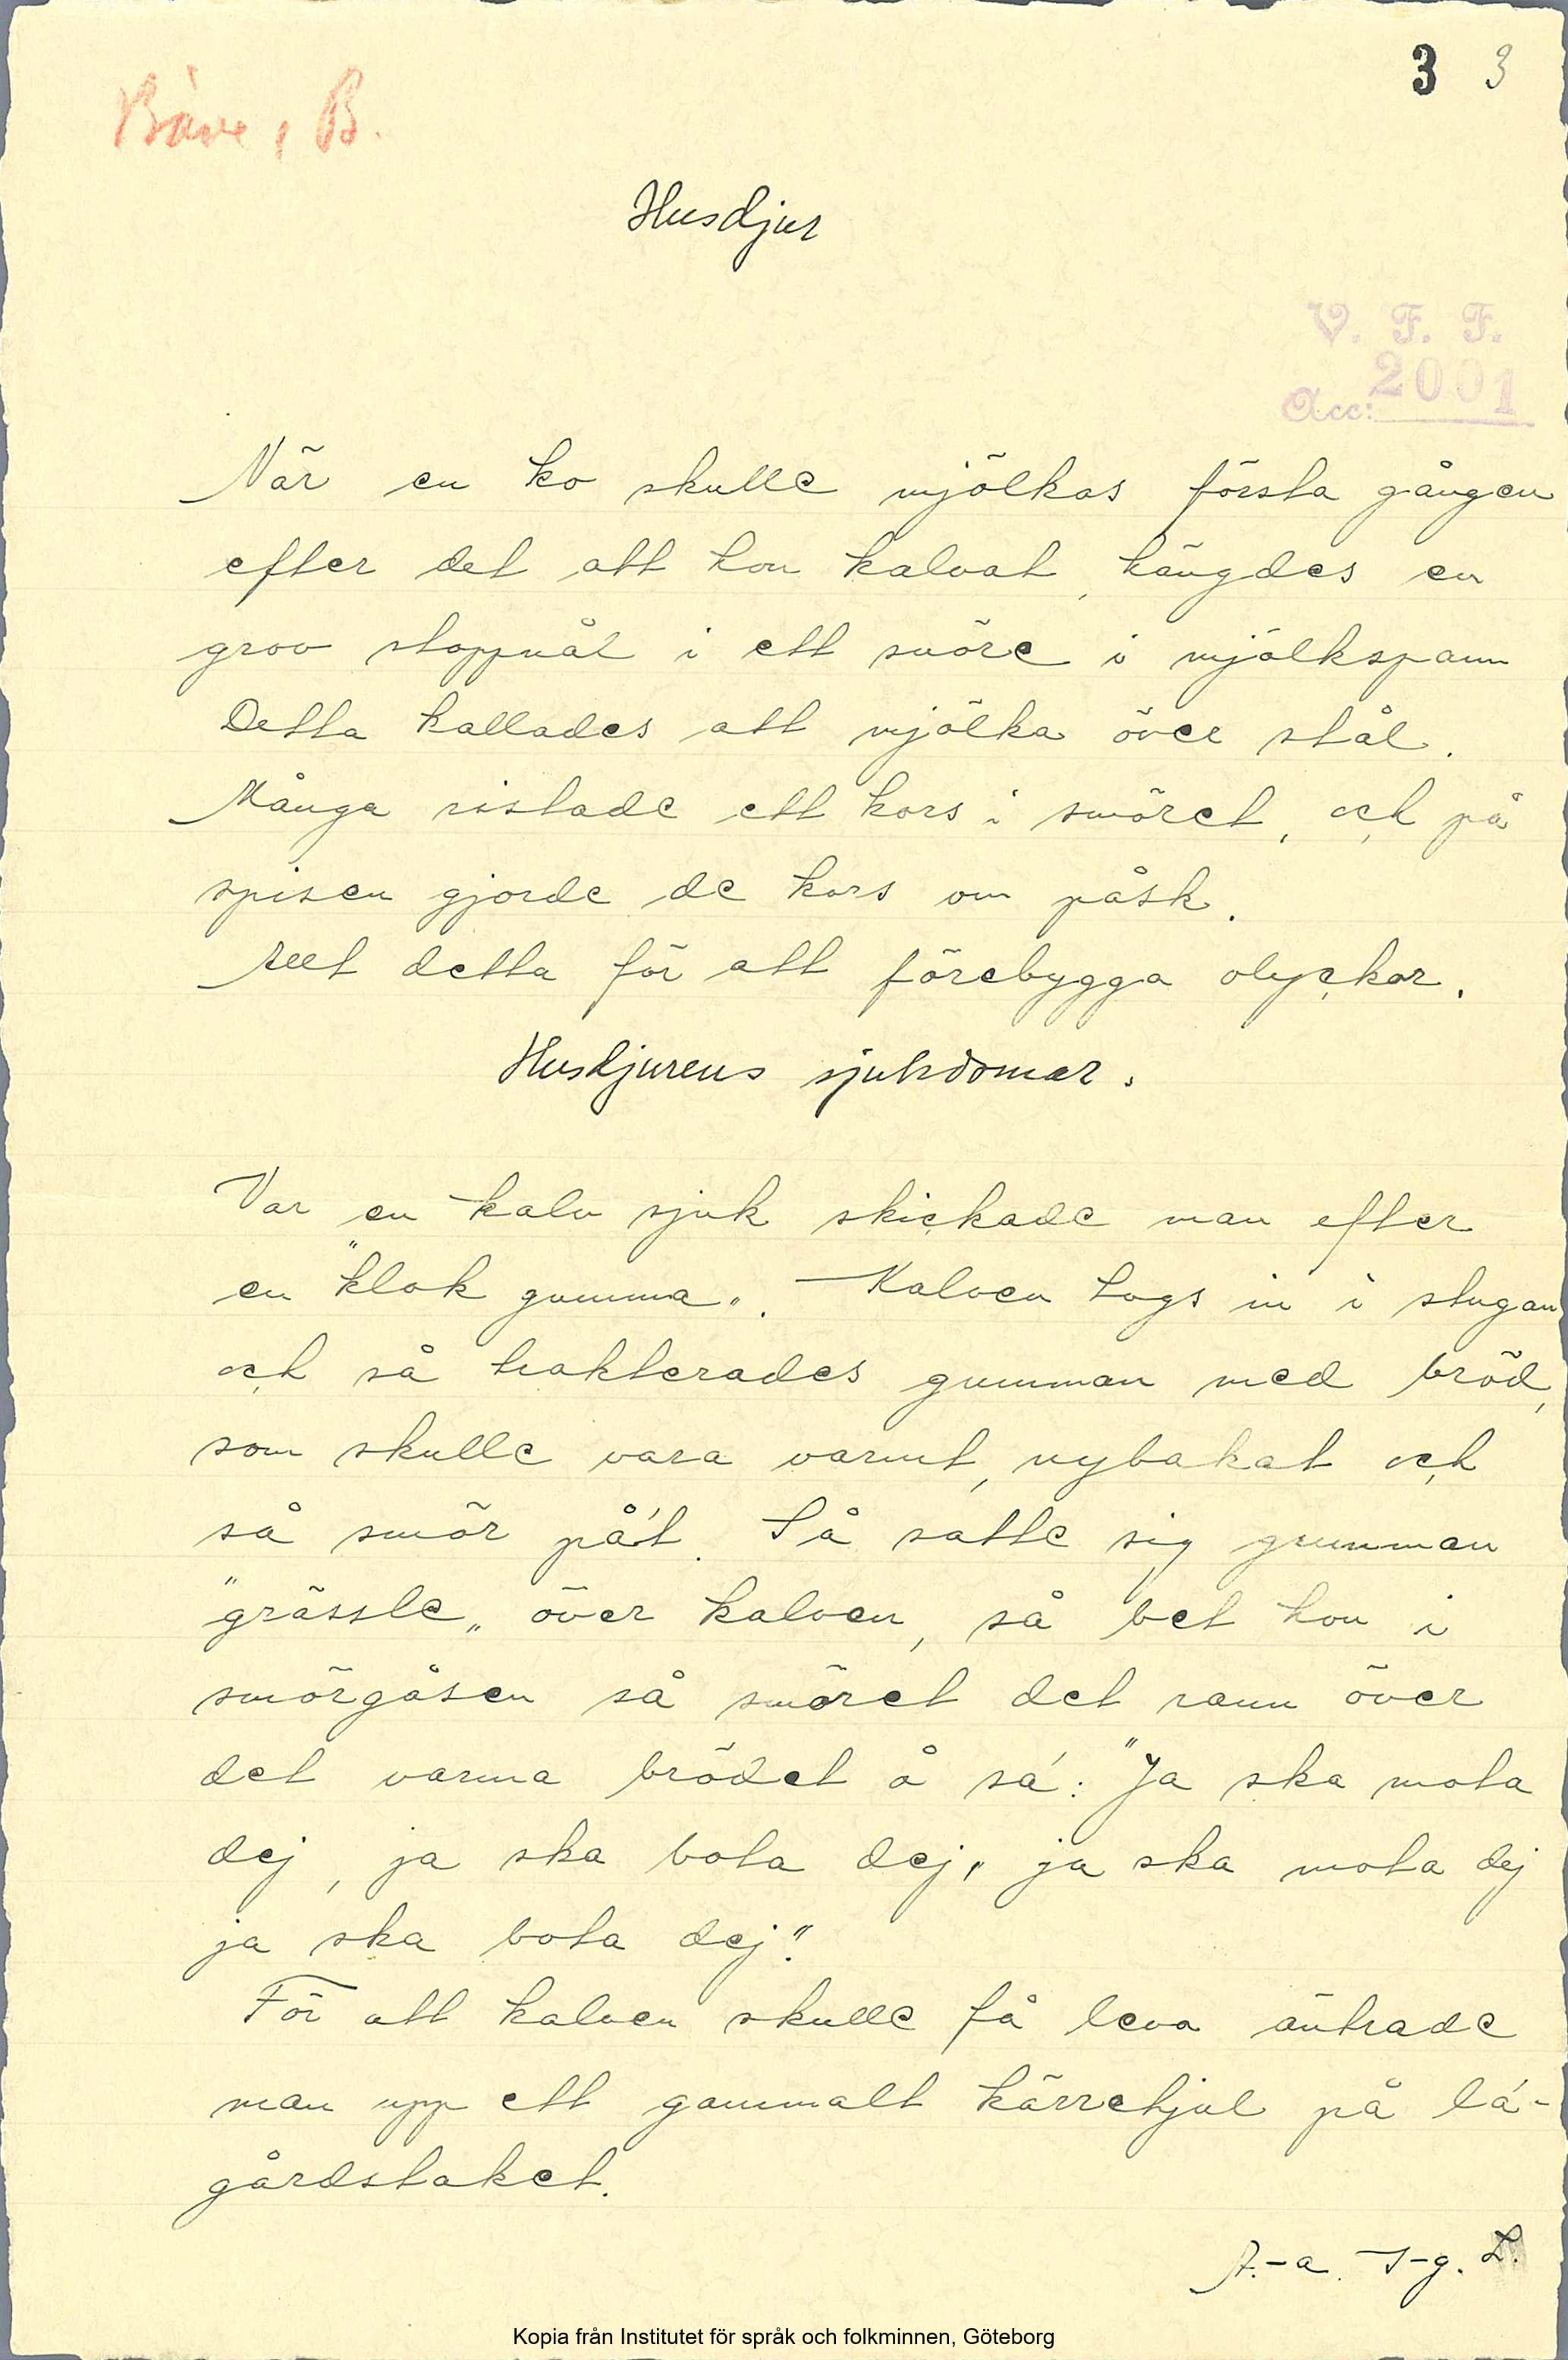 3 3
Bäve, B.
Husdjur
V. F. F.
Acc: 2001
När en ko skulle mjölkas första gången
efter det att hon kalvat, hängdes en
grov stoppnål i ett snöre i mjölkspann
Detta kallades att mjölka över stål.
Många ristade ett kors i smöret, och på
spisen gjorde de kors om påsk.
Allt detta för att förebygga olyckor.
Husdjurens sjukdomar.
Var en kalv sjuk skickade man efter
en "klok gumma". Kalven togs in i stugan
och så trakterades gumman med bröd,
som skulle vara varmt, nybakat och
så smör på't. Så satte sig gumman
"grässle" över kalven, så bet hon i
smörgåsen så smöret det rann över
det varma brödet å sa': "Ja ska mota
dej, ja ska bota dej, ja ska mota dej
ja ska bota dej."
För att kalven skulle få leva äntrade
man upp ett gammalt kärrehjul på la'-
gårdstaket.
A.-a. I-g. L.
Kopia från Institutet för språk och folkminnen, Göteborg